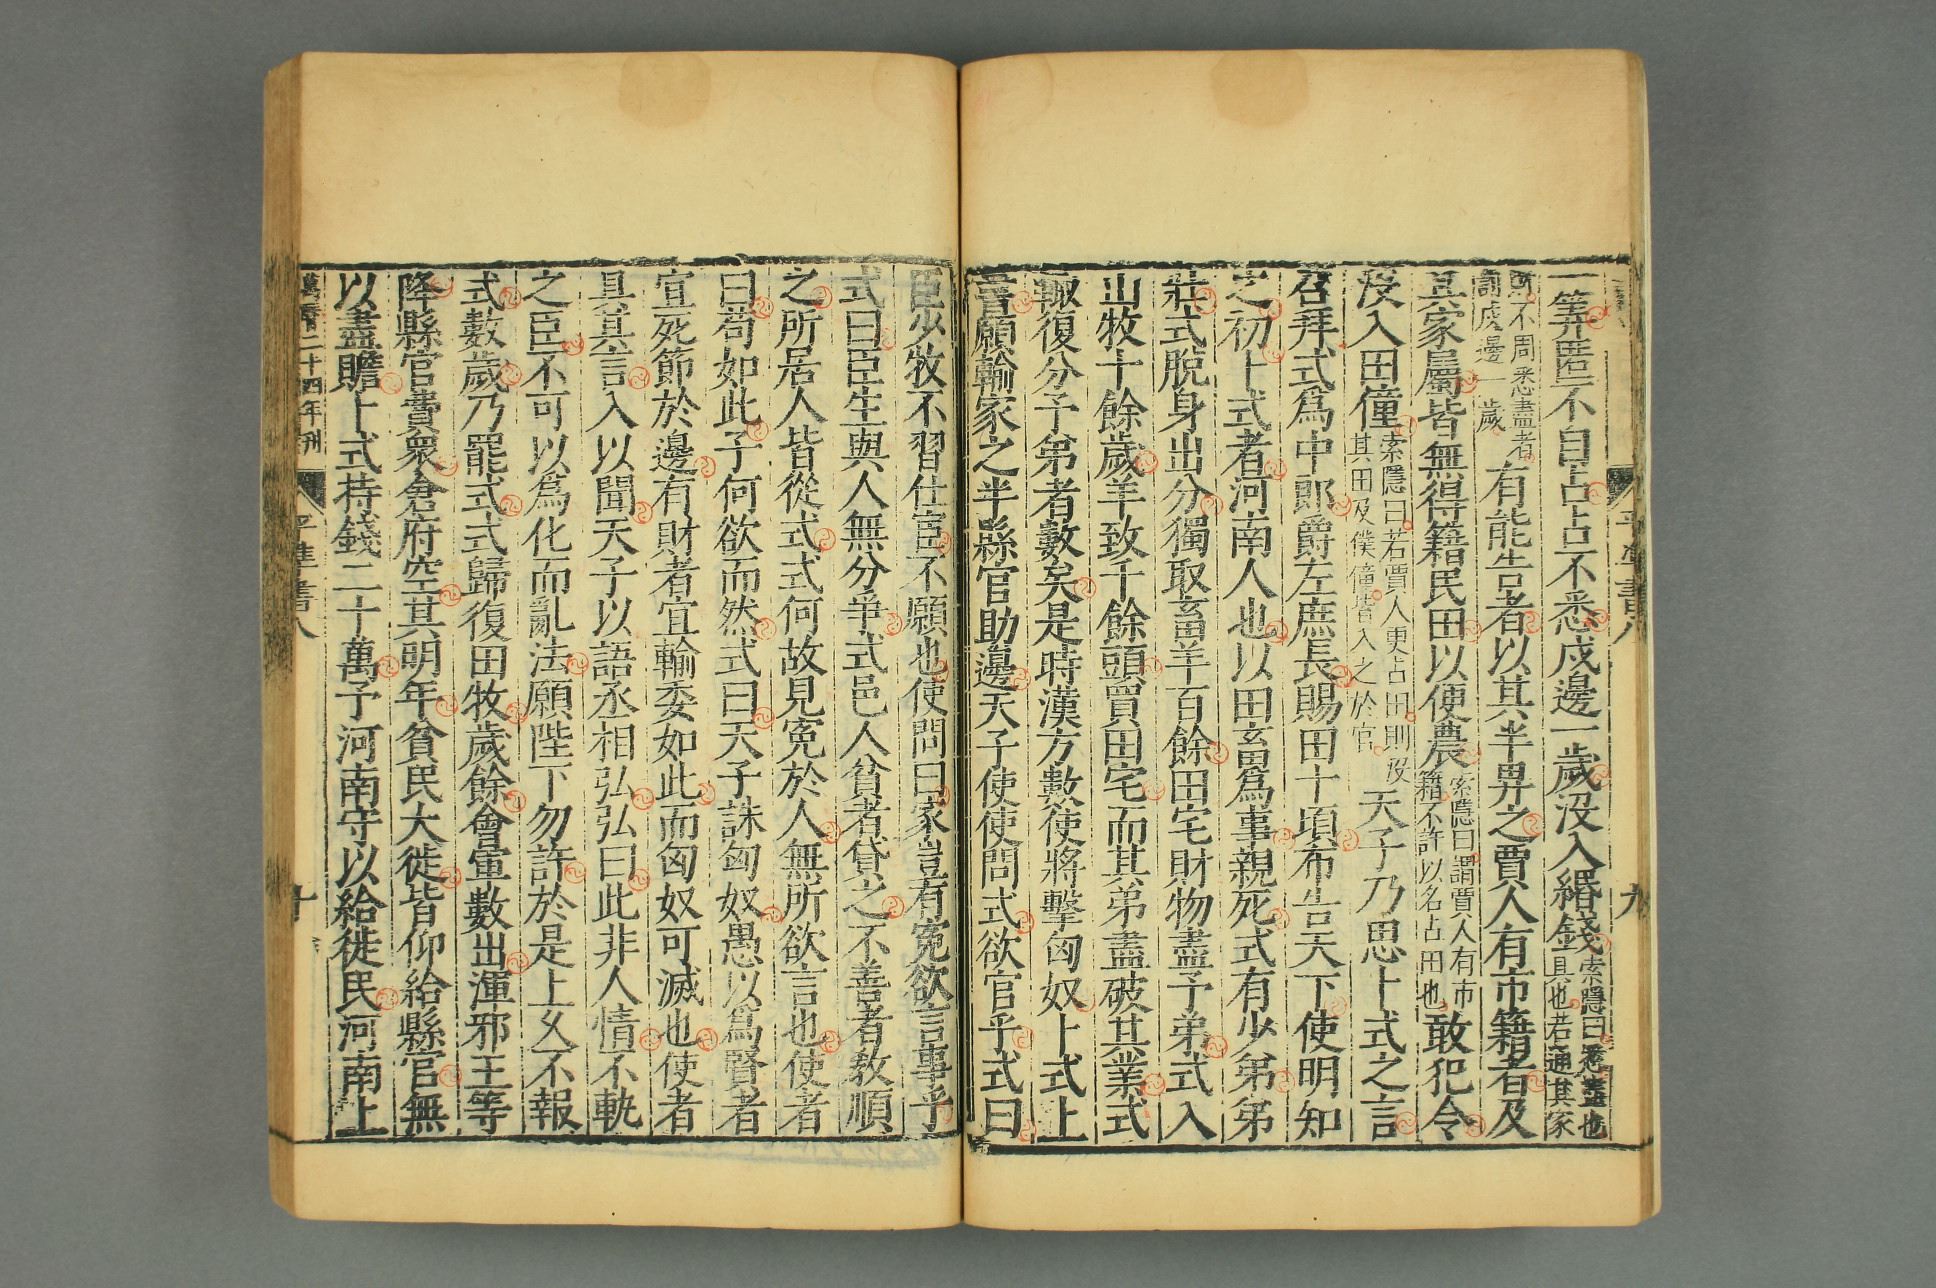 一筭匿不自占占不悉戍邊一歲沒入緡錢索隱曰悉盡也具也若通其家
財不周悉盡者罰戍邊一歲有能告者以其半畀之賈人有市籍者及
其家屬皆無得籍名田以便農索隱曰謂賈人有市籍不許以名占田也敢犯令
沒入田僮索隱曰若賈人更占田則沒其田及僕僮皆入之於官天子乃思卜式之言
召拜式爲中郎爵左庶長賜田十頃布告天下使明知
之初卜式者河南人也以田畜爲事親死式有少弟弟
壯式脫身出分獨取畜羊百餘田宅財物盡予弟式入
山牧十餘歲羊致千餘頭買田宅而其弟盡破其業式
輒復分予弟者數矣是時漢方數使將擊匈奴卜式上
書願輸家之半縣官助邊天子使使問式欲官乎式曰
臣少牧不習仕宦不願也使問曰家豈有冤欲言事乎
式曰臣生與人無分爭式邑人貧者貸之不善者敎順
之所居人皆從式式何故見冤於人無所欲言也使者
曰苟如此子何欲而然式曰天子誅匈奴愚以爲賢者
宜死節於邊有財者宜輸委如此而匈奴可滅也使者
具其言入以聞天子以語丞相弘弘曰此非人情不軌
之臣不可以爲化而亂法願陛下勿許於是上乆不報
式數歲乃罷式式歸復田牧歲餘會軍數出渾邪王等
降縣官費衆倉府空其明年貧民大徙皆仰給縣官無
以盡贍卜式持錢二十萬予河南守以給徙民河南上
二十四年刊
平準書八
十
平準書八
九